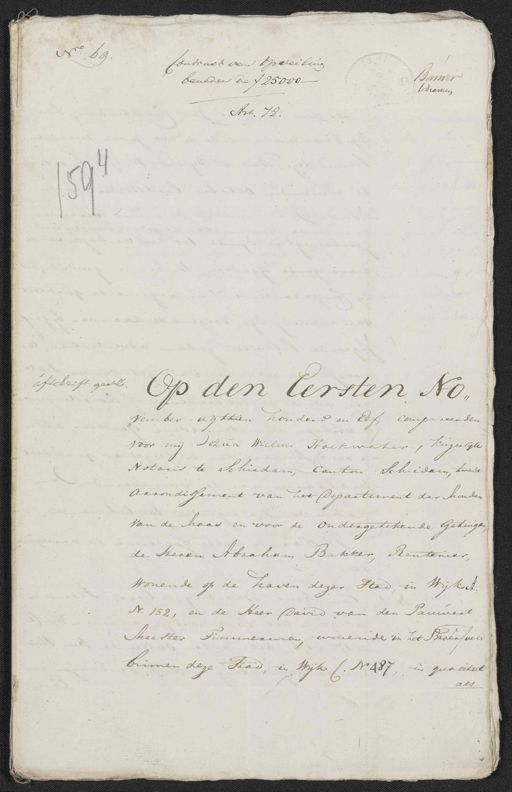 Nro. 69.
Contract van Opveiling
beneden de f 25000
Art. 72.
1594
afschrift
Op den Eersten No„
vember agttien honderd en Elf, compareerden
voor mij Willem Hoekwater, Keizerlijk
Notaris te Schiedam, Canton Schiedam, tweede
Arrondissement van het Departement der Monden
van de Maas en voor de Ondergetekende Getuigen
de Heeren Abraham Bakker, Rentenier,
wonende op de haven dezer Stad, in Wijk A.
No 152, en de Heer David van den Pauvert
Meester Timmerman, wonende in het
binnen deze Stad, in Wijk C. No 487, in qualiteit
als